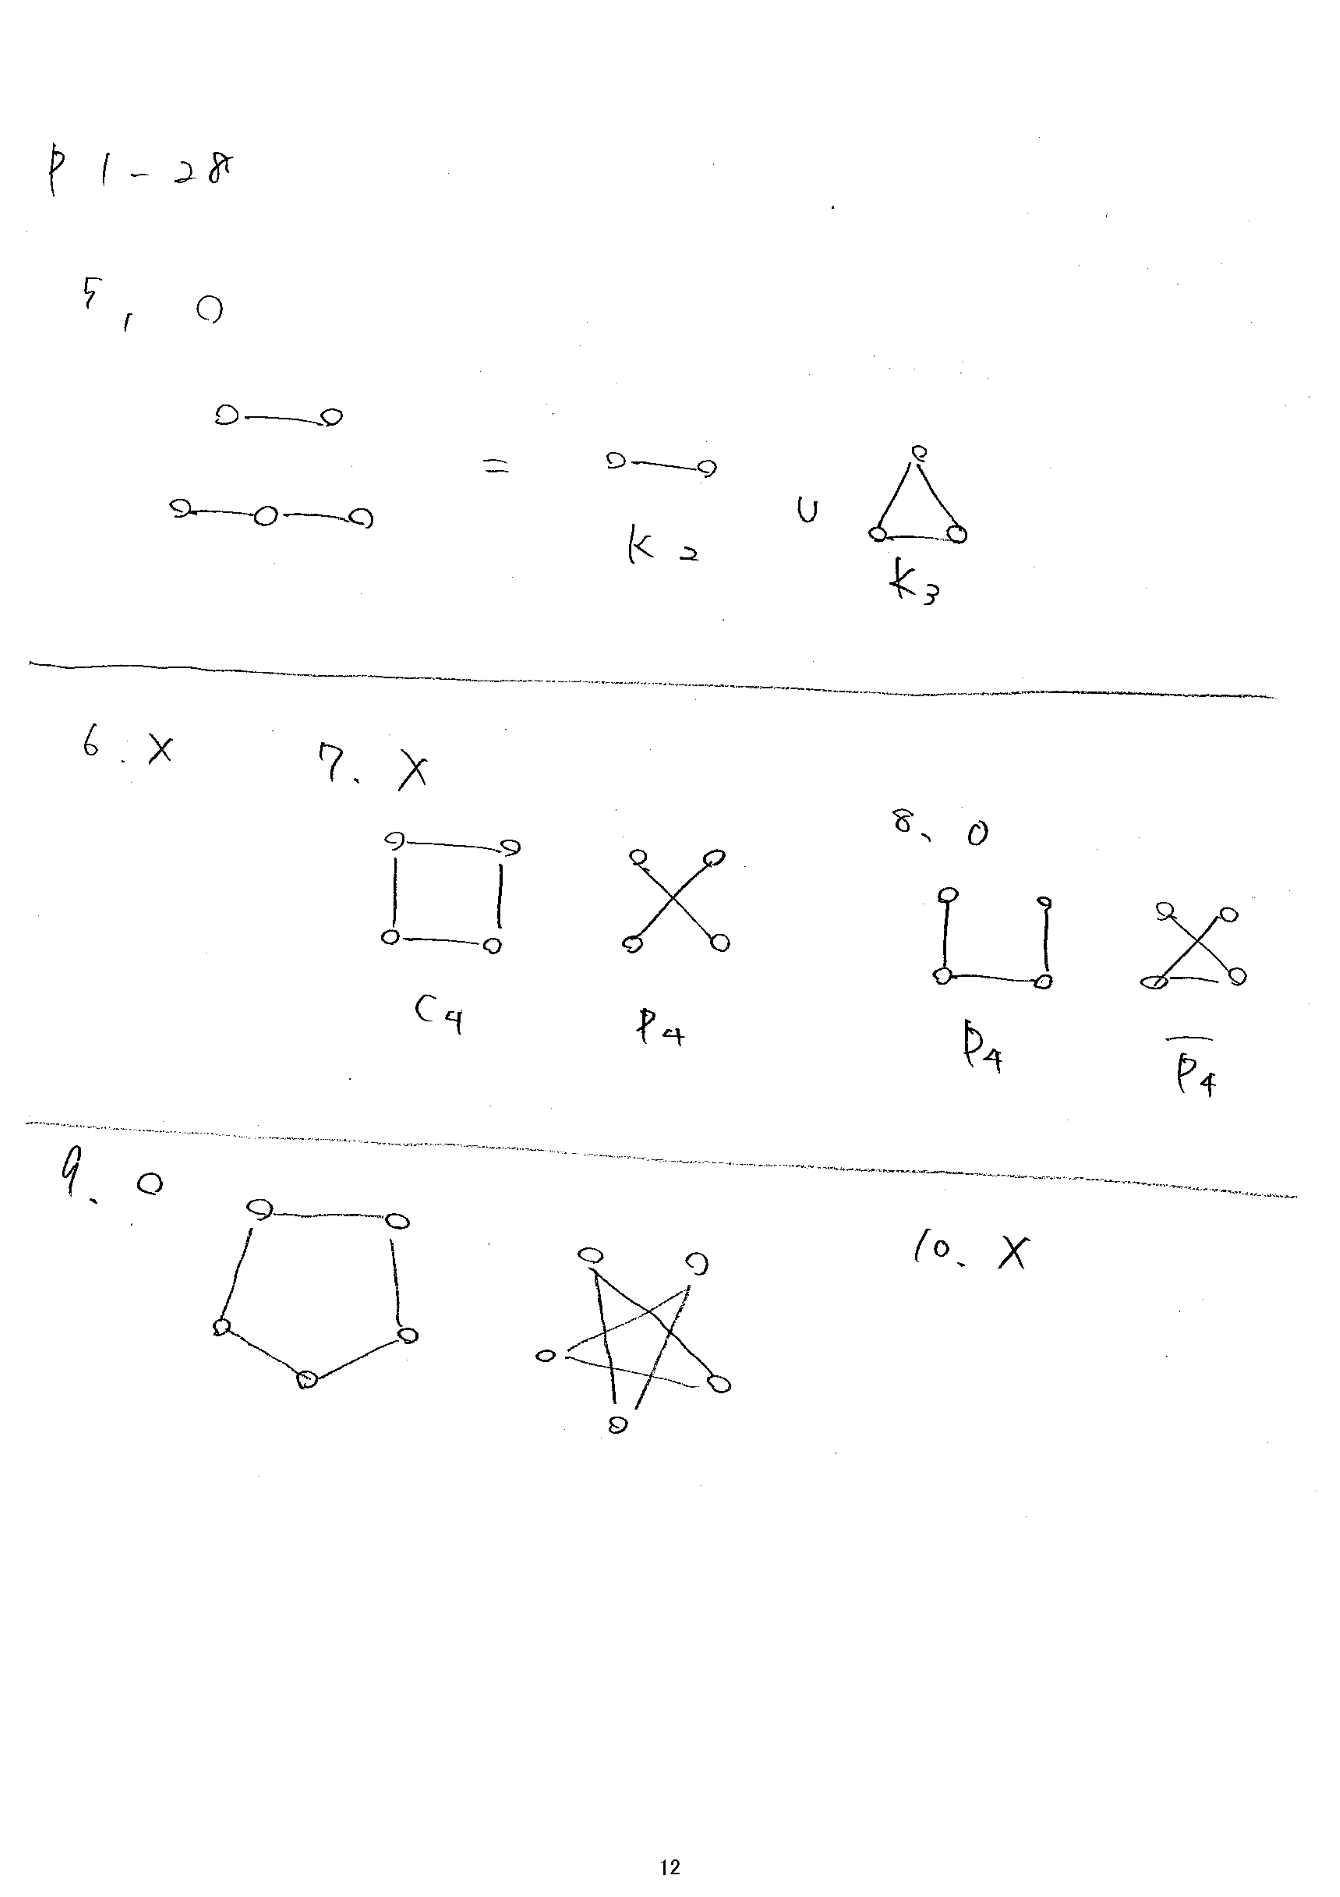 P 1 - 28
5, O
=
K2
∪
K3
6. X
7. X
8、O
C4
P4
P4
P̅4̅
9、O
10. X
12